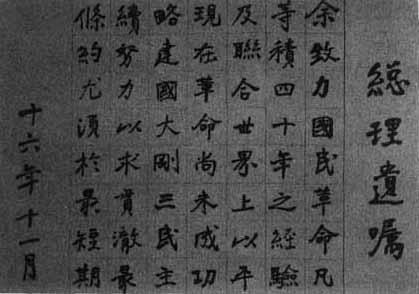 總理遺囑
余致力國民革命凡
等積四十年之經驗
及聯合世界上以平
現在革命尚未成功
略建國大剛三民主
續努力以求貫澈最
條約尤須於最短期
十六年十一月